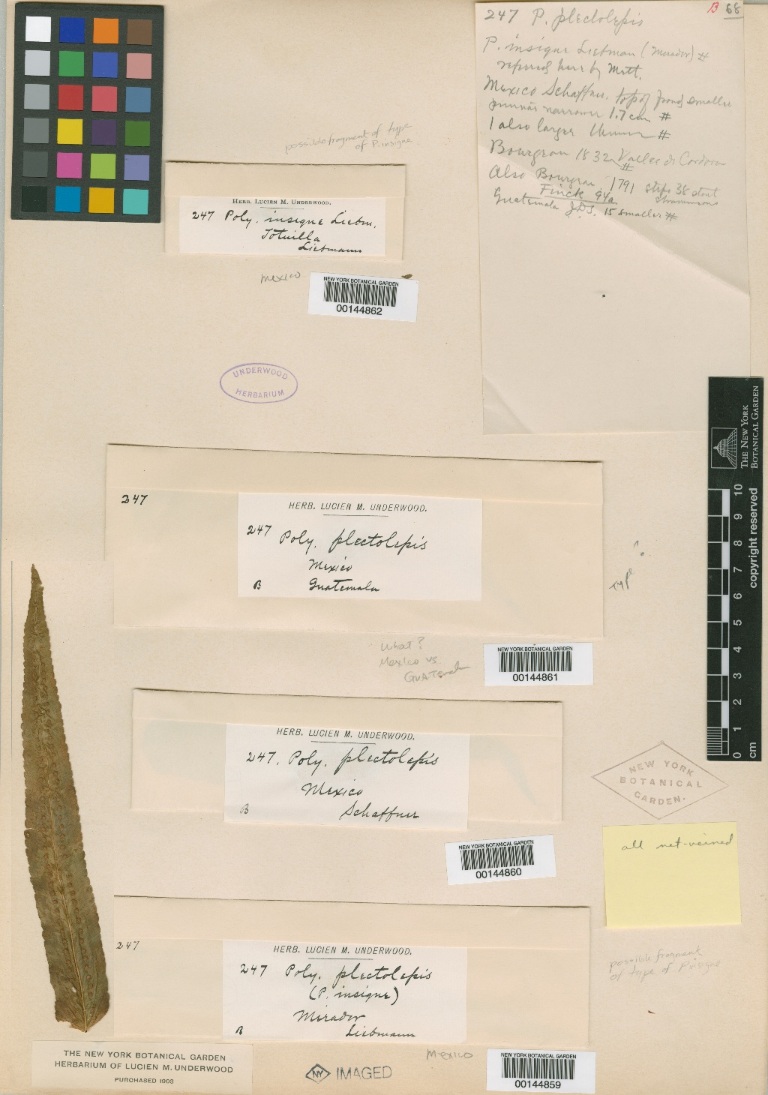 247 P. plectolepis
B 68
P. insigne Liebman (Mirador) #
referred here by Mett.
Mexico Schaffner. top of frond smaller
pinnae narrower 1.7 cm #
1 also larger #
Bourgeau 1832 Vallee de Cordova
#
Also Bourgeau 1791 38
Finck 94a
Guatemala J.D.S. 15 smaller #
possible fragment of type
of P. insigne
HERB. LUCIEN M. UNDERWOOD.
247 Poly. insigne Liebm.
Totutla
Liebmann
Mexico
NEW YORK BOTANICAL GARDEN
00144862
UNDERWOOD
HERBARIUM
THE NEW YORK
BOTANICAL GARDEN
copyright reserved
0 1 2 3 4 5 6 7 8 9 10
cm
247
HERB. LUCIEN M. UNDERWOOD.
247 Poly. plectolepis
Mexico
B Guatemala
?
What?
Mexico vs.
Guatemala
NEW YORK BOTANICAL GARDEN
00144861
HERB. LUCIEN M. UNDERWOOD.
247. Poly. plectolepis
Mexico
B Schaffner
NEW YORK BOTANICAL GARDEN
00144860
NEW YORK
BOTANICAL
GARDEN.
all net-veined
247
HERB. LUCIEN M. UNDERWOOD.
247 Poly. plectolepis
(P. insigne)
Mirador
B Liebmann
possible fragment
of type of P. insigne
THE NEW YORK BOTANICAL GARDEN
HERBARIUM OF LUCIEN M. UNDERWOOD
PURCHASED
NY IMAGED
Mexico
NEW YORK BOTANICAL GARDEN
00144859